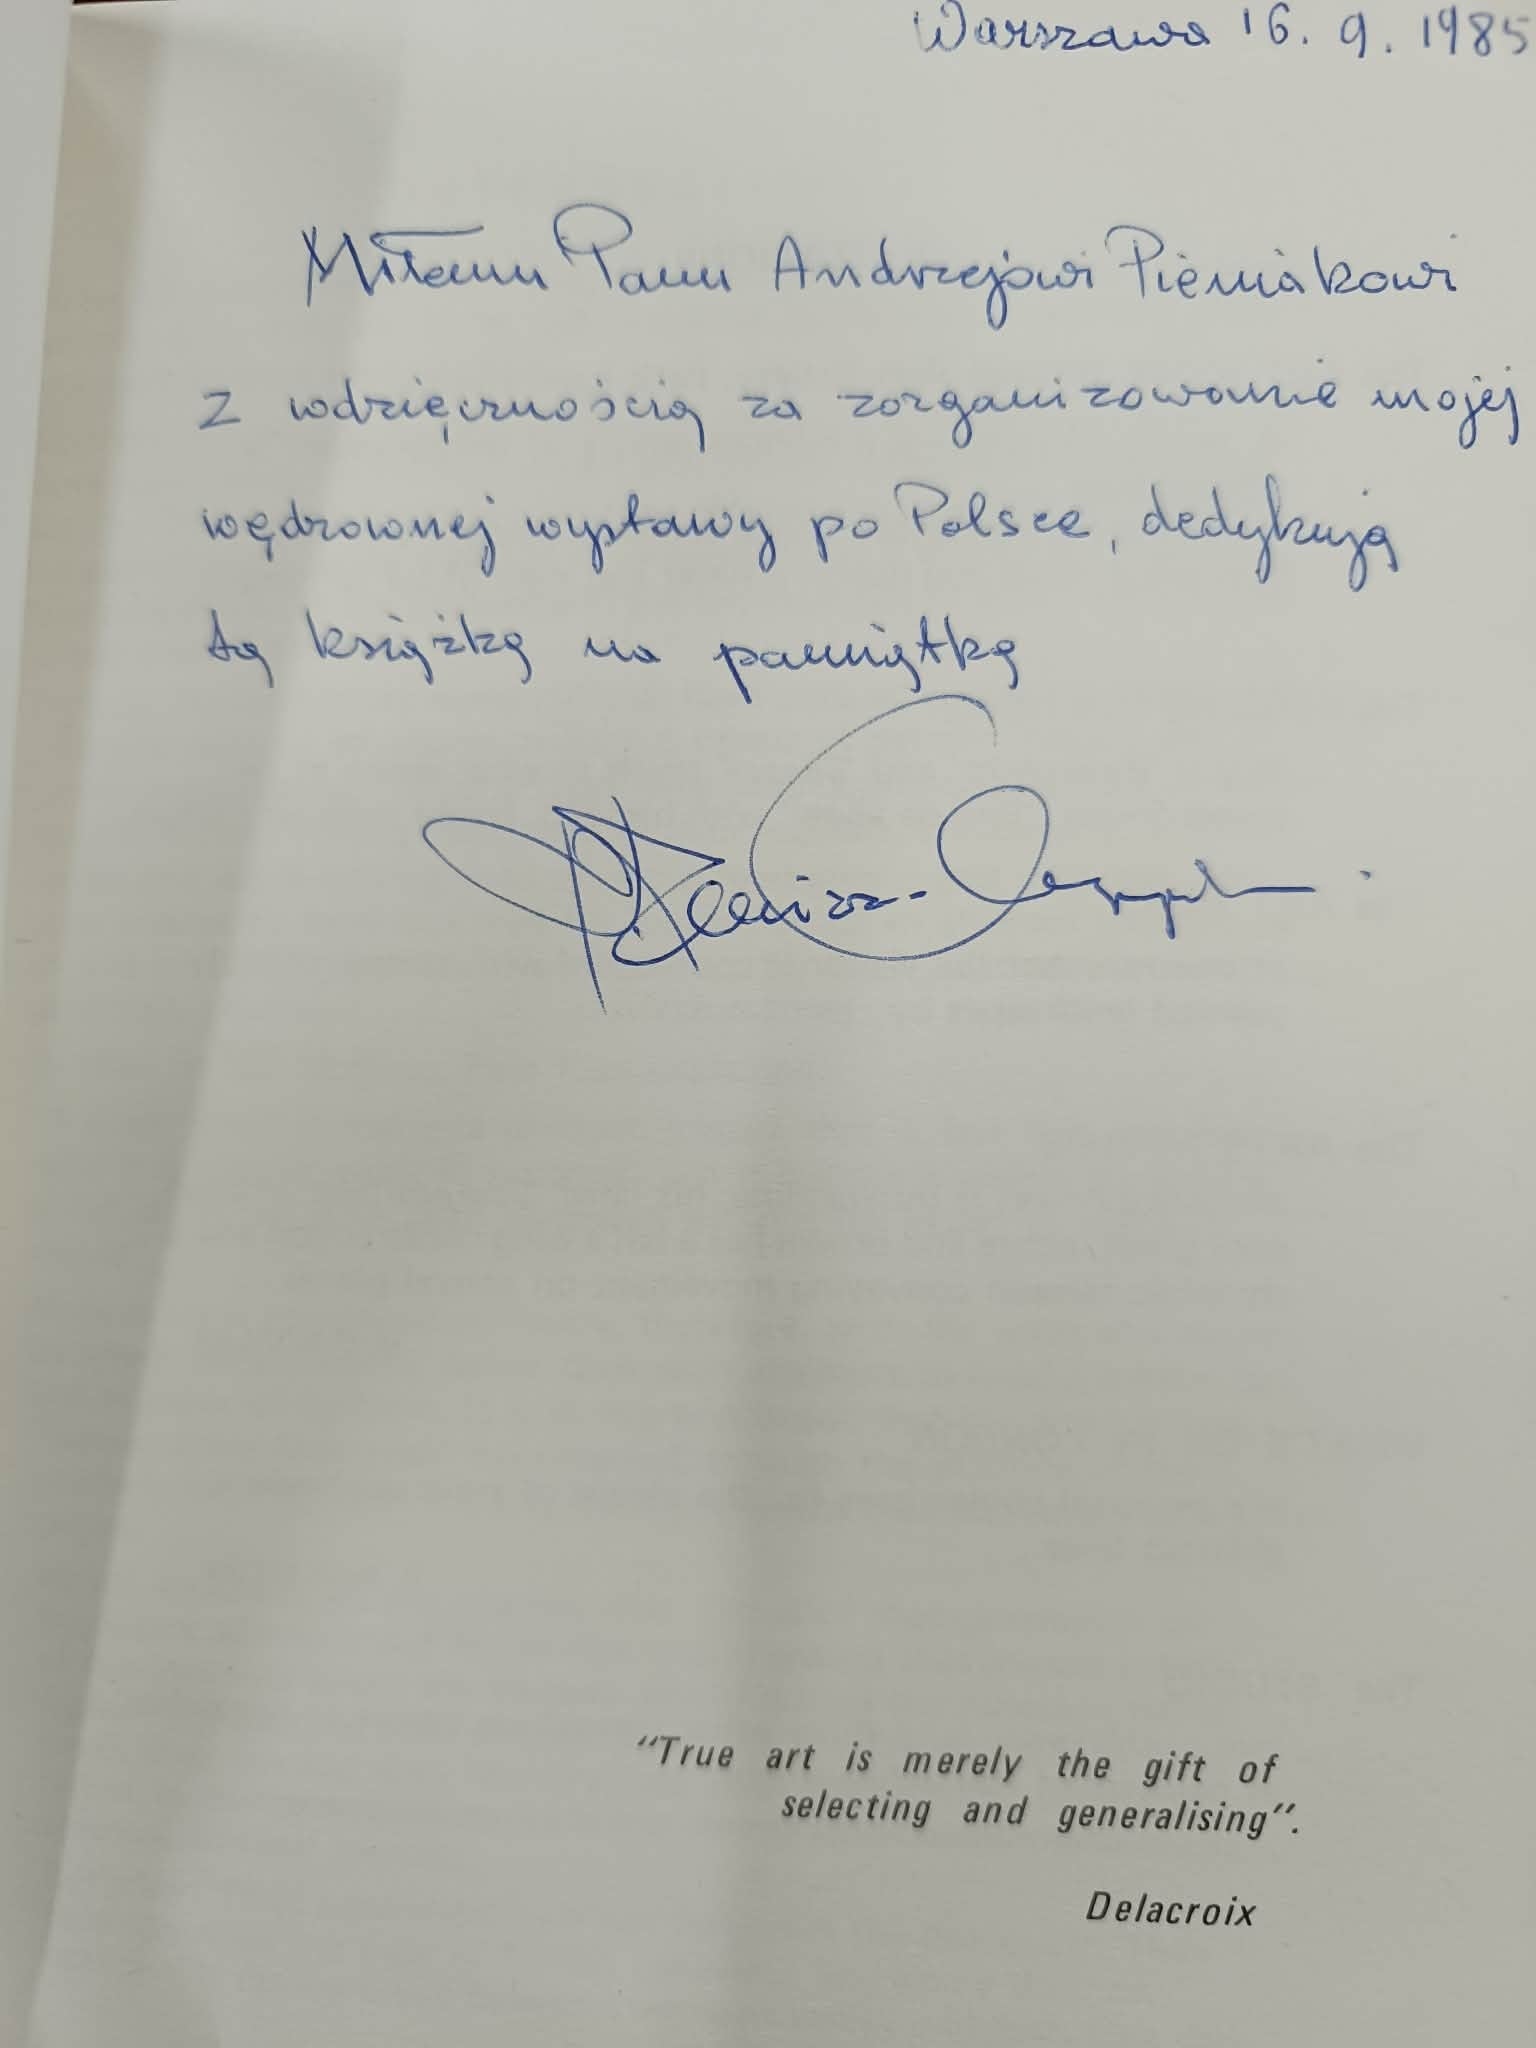 Warszawa 16. 9. 1985
Miłemu Panu Andrzejowi Pieniakowi
z wdzięcznością za zorganizowanie mojej
wędrownej wystawy po Polsce, dedykuję
tę książkę na pamiątkę
"True art is merely the gift of
selecting and generalising".
Delacroix